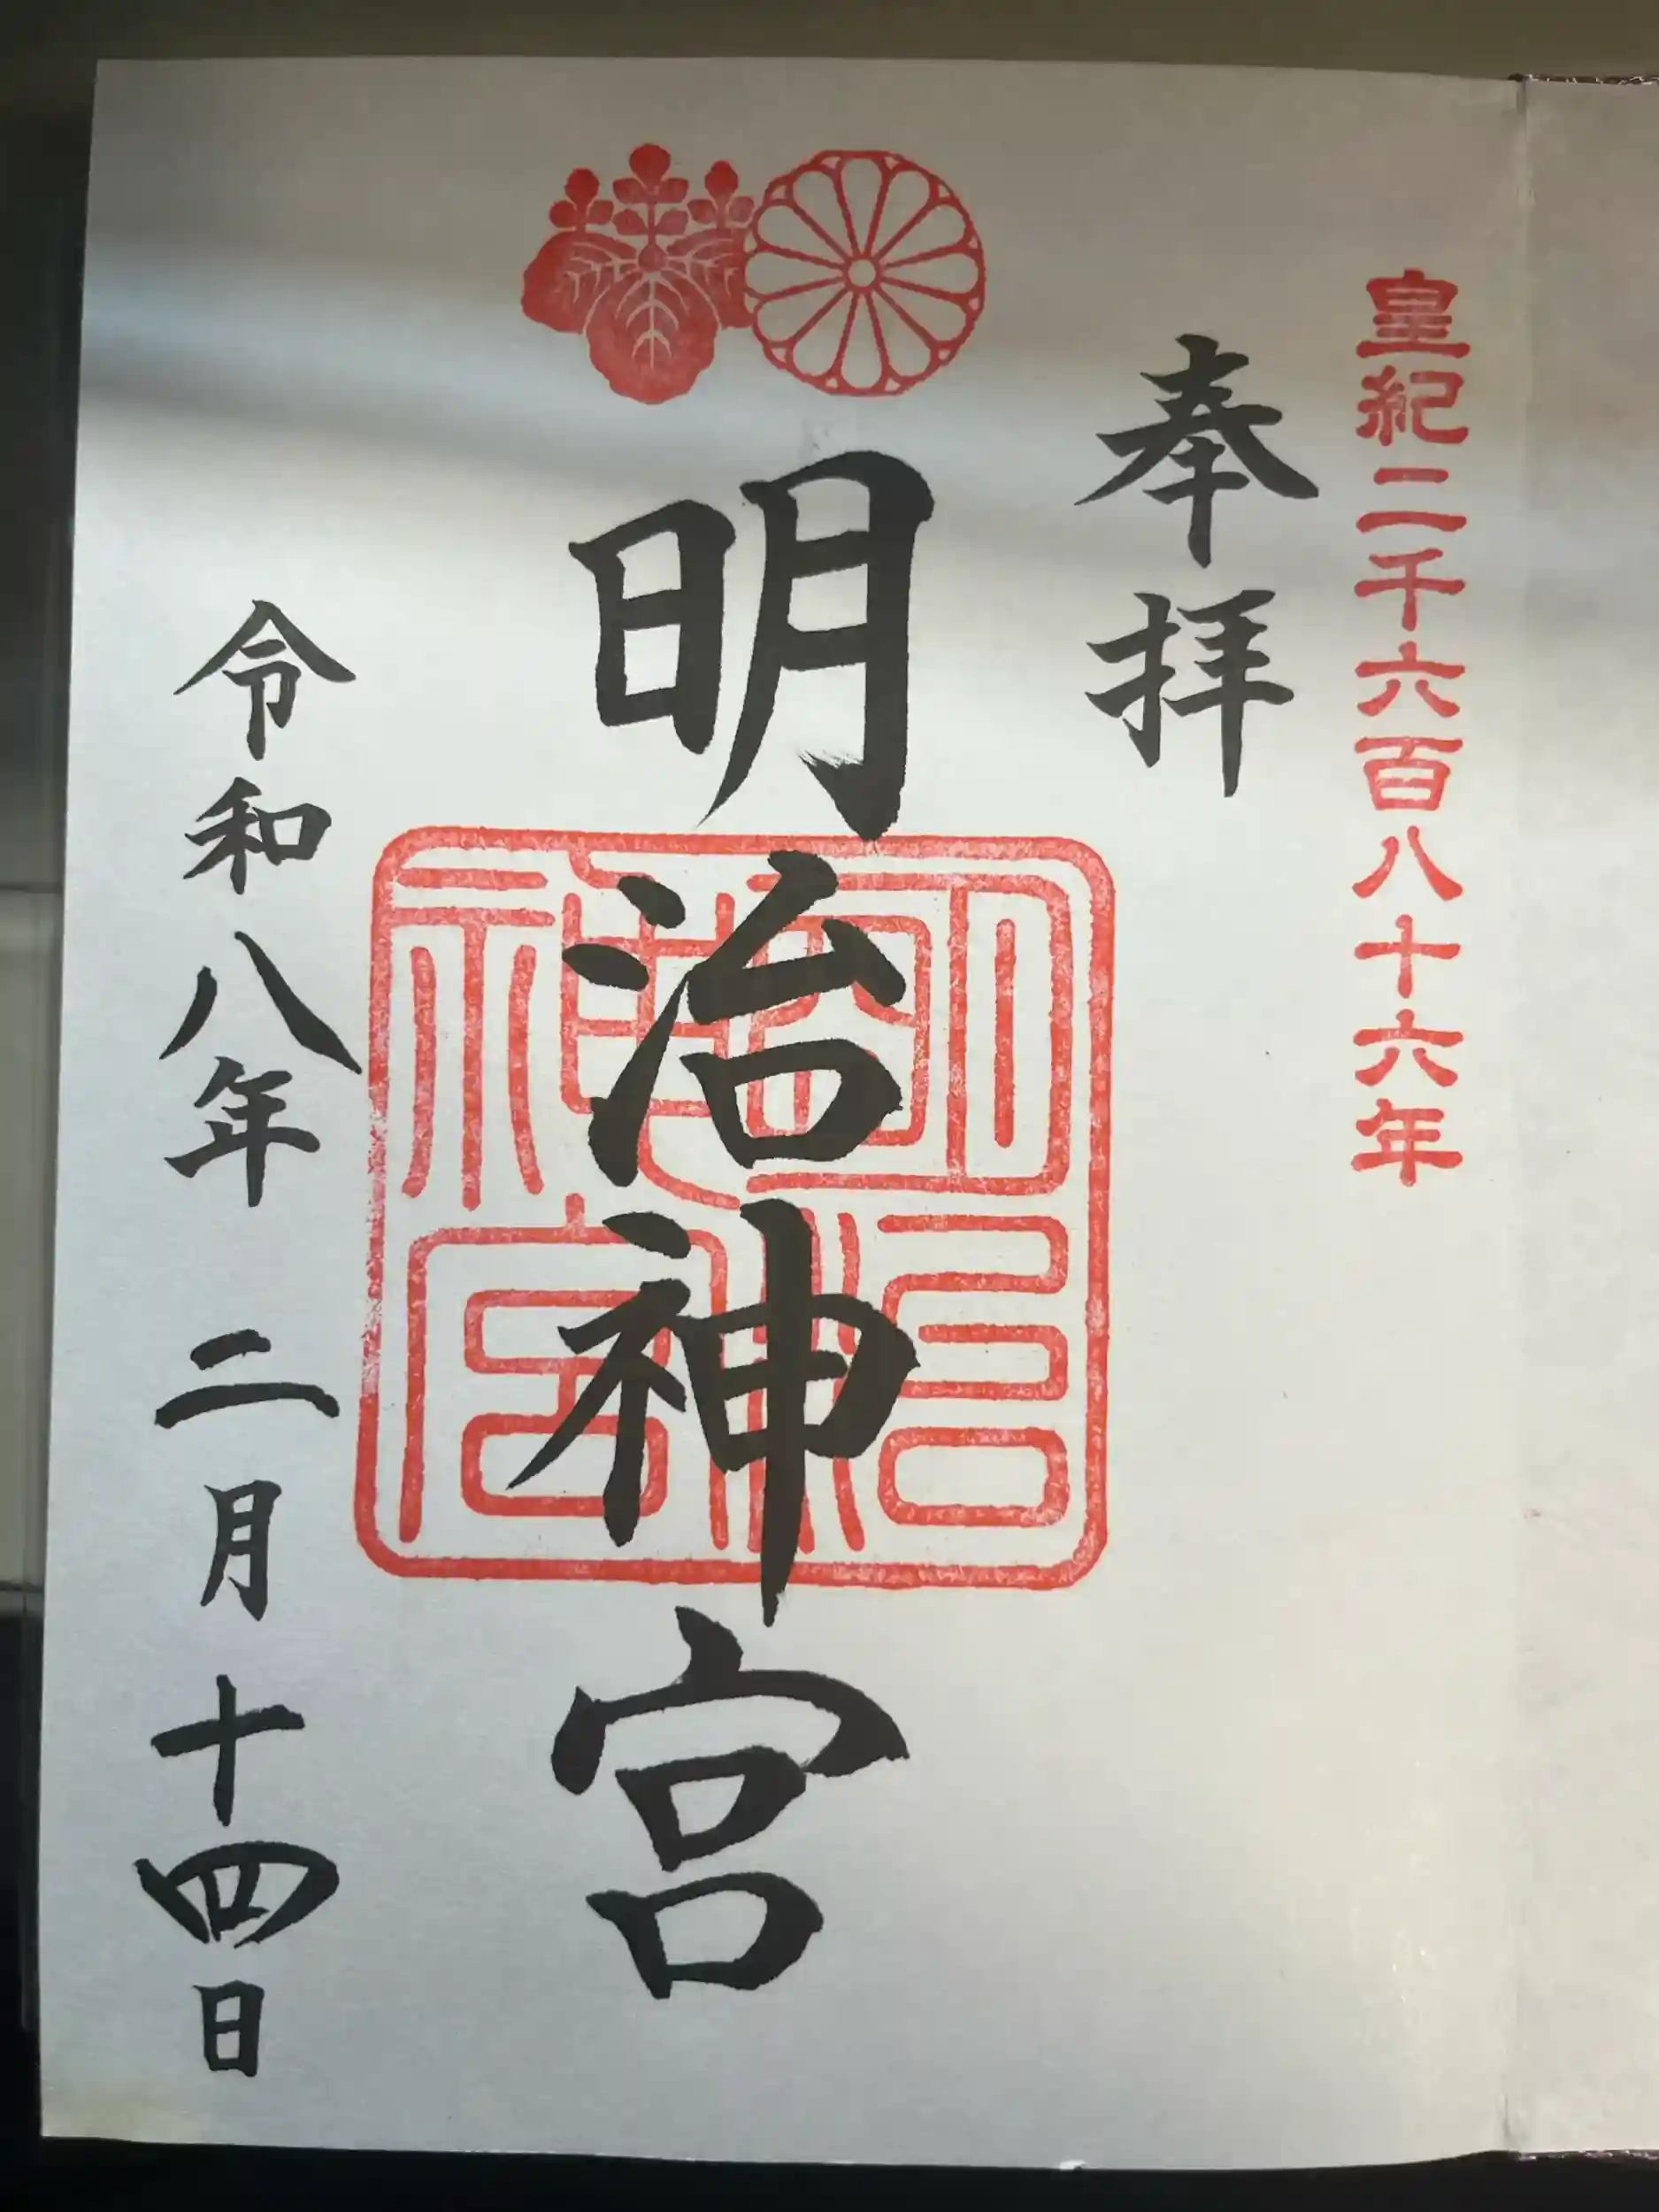 皇紀二千六百八十六年
奉拝
明治神宮
明治神宮
令和八年 二月 十四日